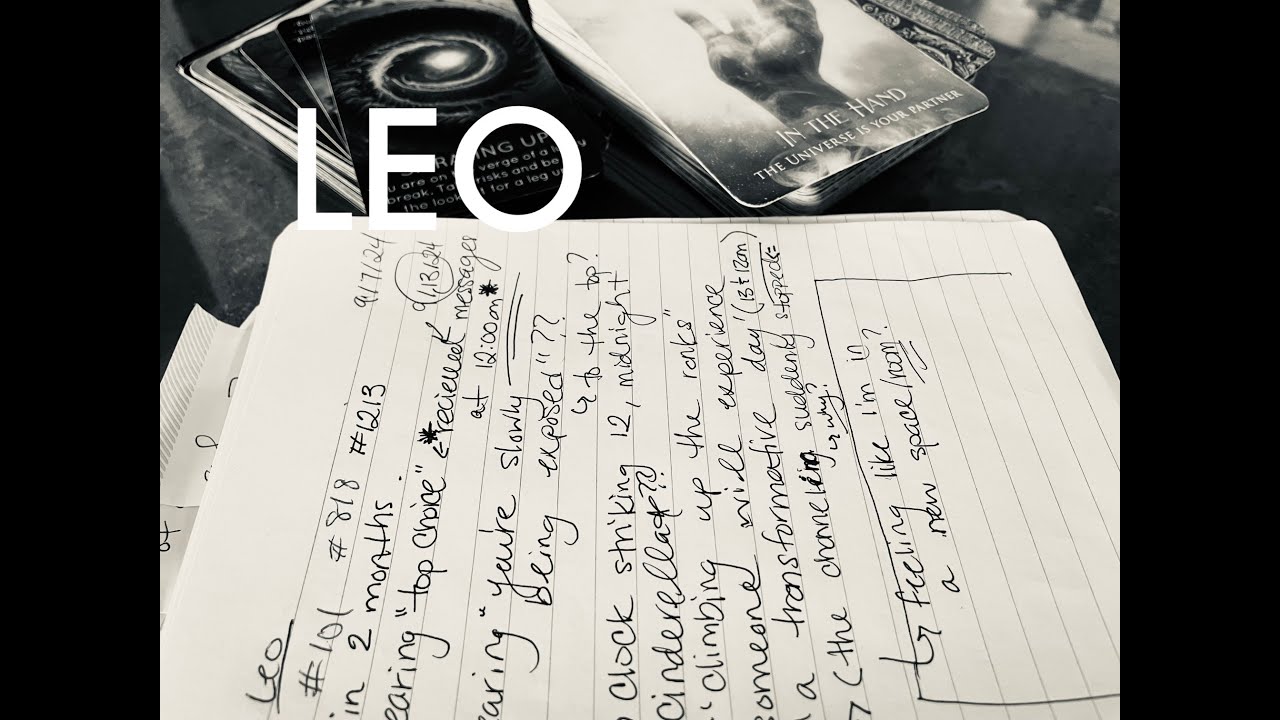 LEO
UP
are on verge of a
break. risks and be
the for a leg
IN THE HAND
THE UNIVERSE IS YOUR PARTNER
Leo
#101 #818 #1213 9/7/24
in 2 months. 9/13/24
earing "top choice" *recieved messages
at 12:00am*
earing "you're slowly
being exposed"??
↳ to the top?
clock striking 12, midnight
cinderella??
"climbing up the ranks"
someone will experience
a transformative day' (13 + 12am)
(the channeling suddenly stopped=
↳ why?
↳ Feeling like i'm in
a new space/room?